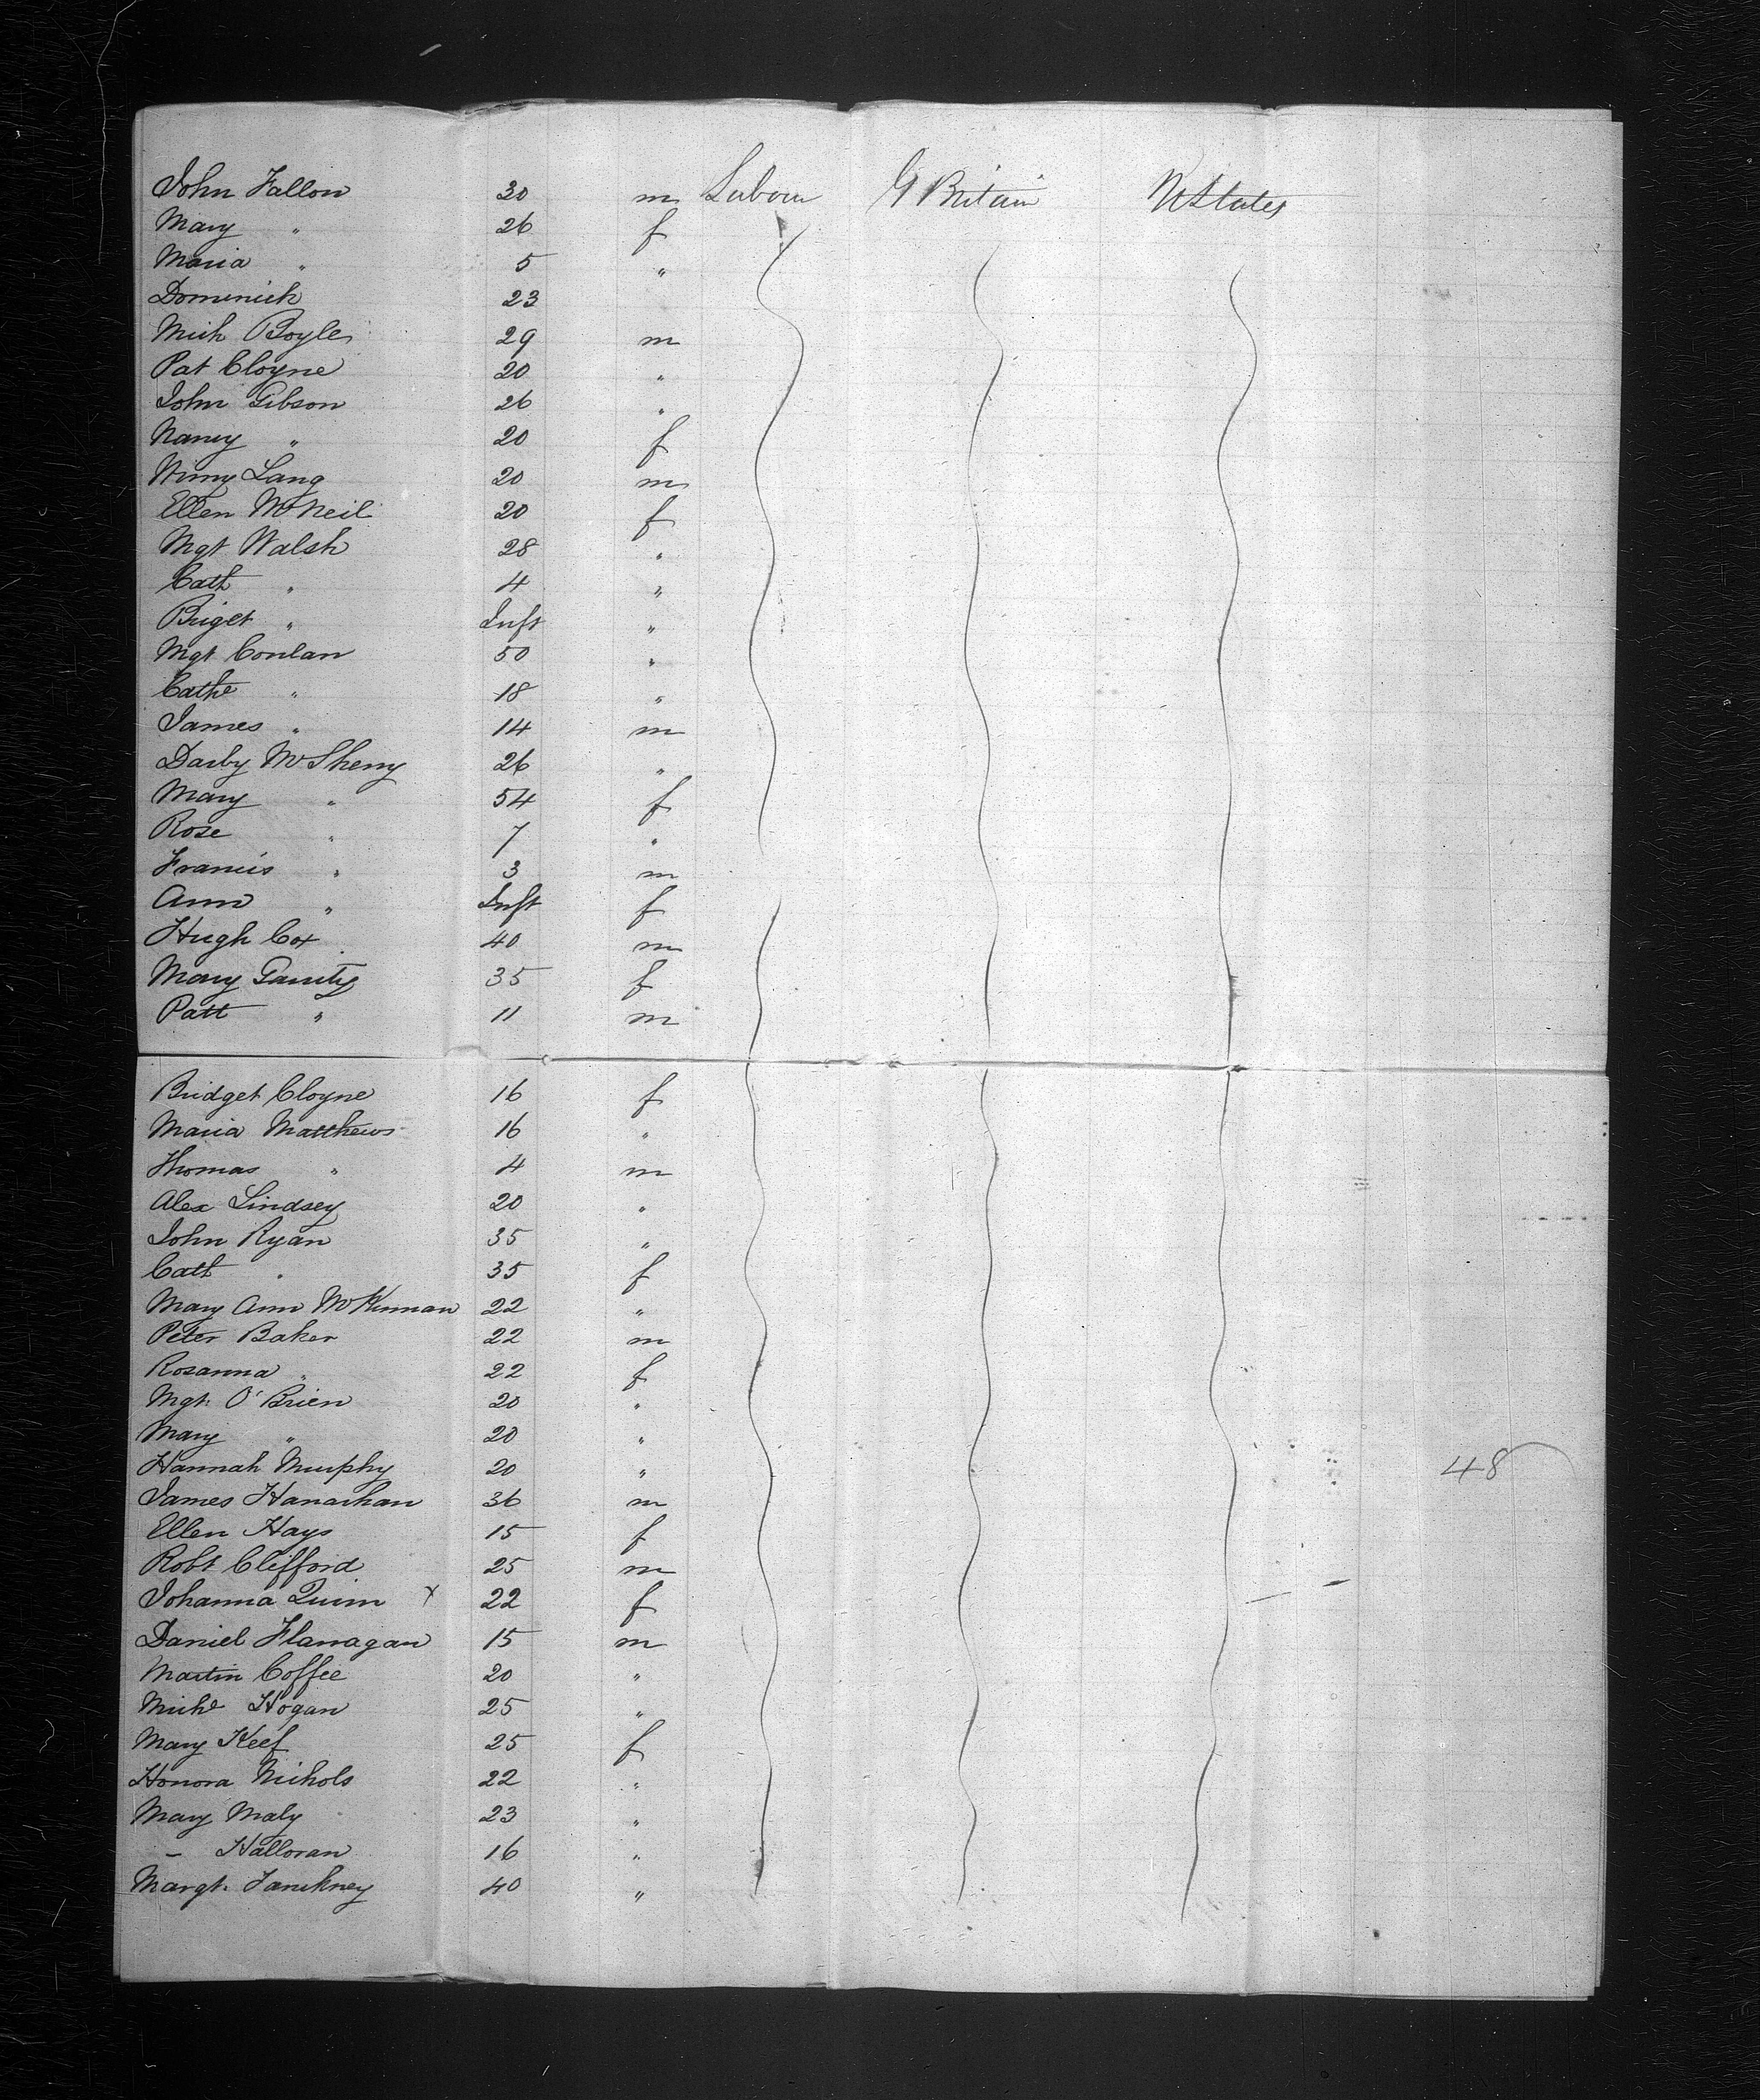 John Fallon 30 m Labour G Britain U States
Mary " 26 f
Maria " 5 "
Dominick 23
Mich Boyle 29 m
Pat Cloyne 20 "
John Gibson 26 "
Nancy " 20 f
Lang 20 m
Ellen McNeil 20 f
Mgt Walsh 28 "
Cath " 4 "
Briget " Inft "
Mgt Conlan 50 "
Cathe " 18 "
James " 14 m
Darby McSherry 26 "
Mary " 54 f
Rose " 7 "
Francis " 3 m
Ann " Inft f
Hugh Cox 40 m
Mary Garrity 35 f
Patt " 11 m
Bridget Cloyne 16 f
Maria Matthews 16 "
Thomas " 4 m
Alex Lindsey 20 "
John Ryan 35 "
Cath " 35 f
Mary Ann McKinnan 22 "
Peter Baker 22 m
Rosanna " 22 f
Mgt. O'Brien 20 "
Mary " 20 "
Hannah Murphy 20 " 48
James Hanarhan 36 m
Ellen Hays 15 f
Robt Clifford 25 m
Johanna Quinn x 22 f
Daniel Flanagan 15 m
Martin Coffee 20 "
Miche Hogan 25 "
Mary Keef 25 f
Honora Nichols 22 "
Mary Maly 23 "
– Halloran 16 "
Margt. 40 "